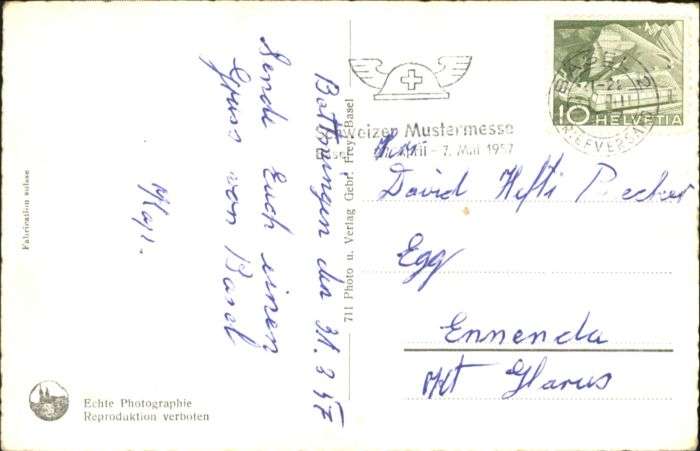 Bottmingen den 31.3 57
Sende Euch einen
Gruss von Basel
Schweizer Mustermesse
April – 7. Mai 1957
BASEL 2
BRIEFVERSAND
10 HELVETIA
David Hefti
Egg
Ennenda
Kt Glarus
711 Photo u. Verlag Gebr. Frey, Basel
Fabrication suisse
Echte Photographie
Reproduktion verboten